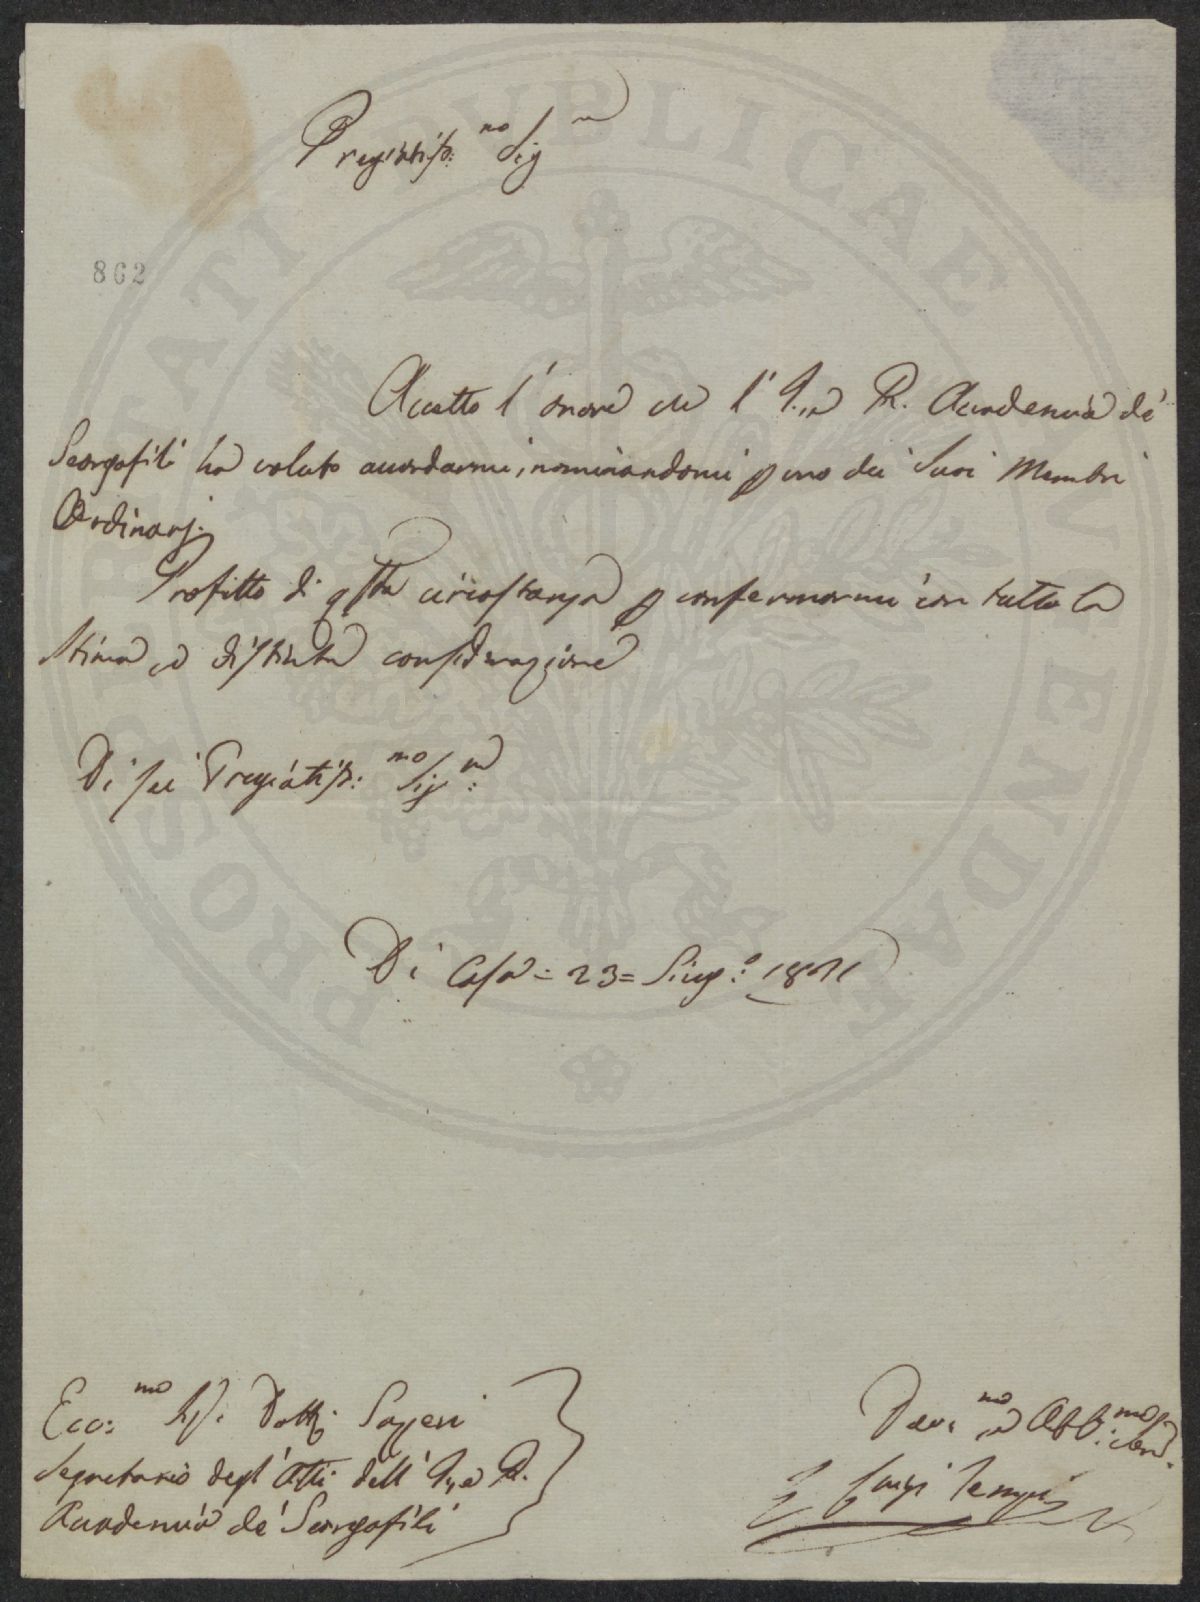 Pregiatiss:mo Sig.re
862
Accetto l'onore che l'I. e R. Accademia de'
Georgofili ha voluto accordarmi, nominandomi p uno dei Suoi Membri
Ordinarj.
Profitto di qsta circostanza p confermarmi con tutta la
stima, e distinta considerazione
Di Lei Pregiatiss:mo Sig:re
Di Casa = 23 = Giug:o
Ecc:mo Sig. Dott.
Segretario degl'Atti dell'I. e R.
Accademia de' Georgofili
Dev.mo e Obb:mo Serv.
Luigi Tempi
PROSPERITATI PUBLICAE AUGENDAE